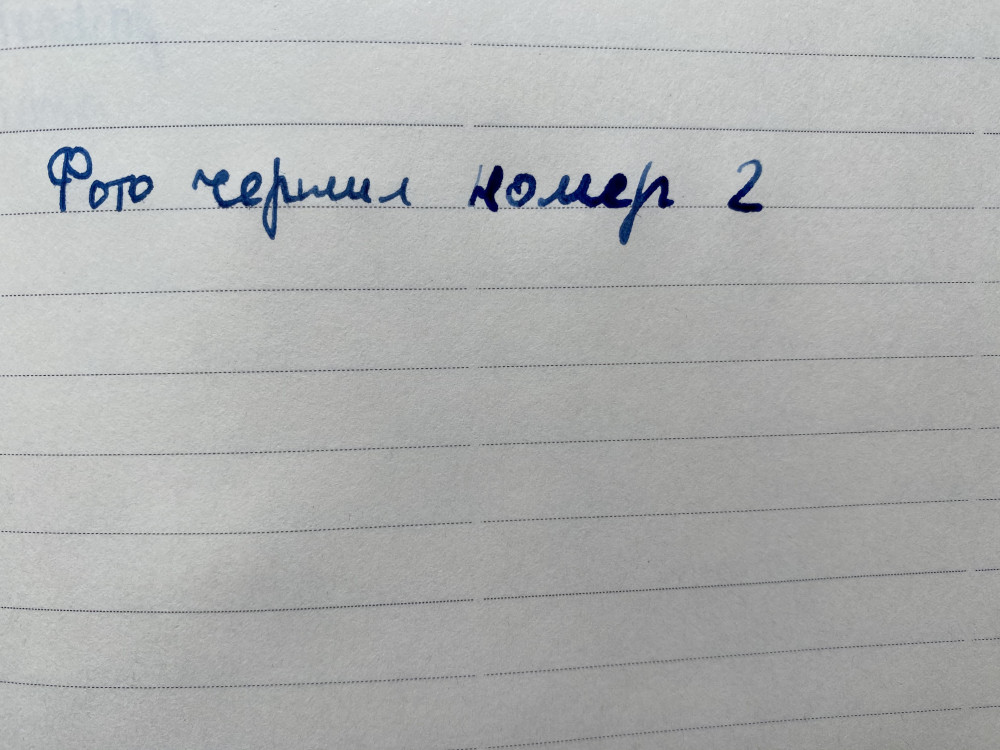 Фото чернил номер 2